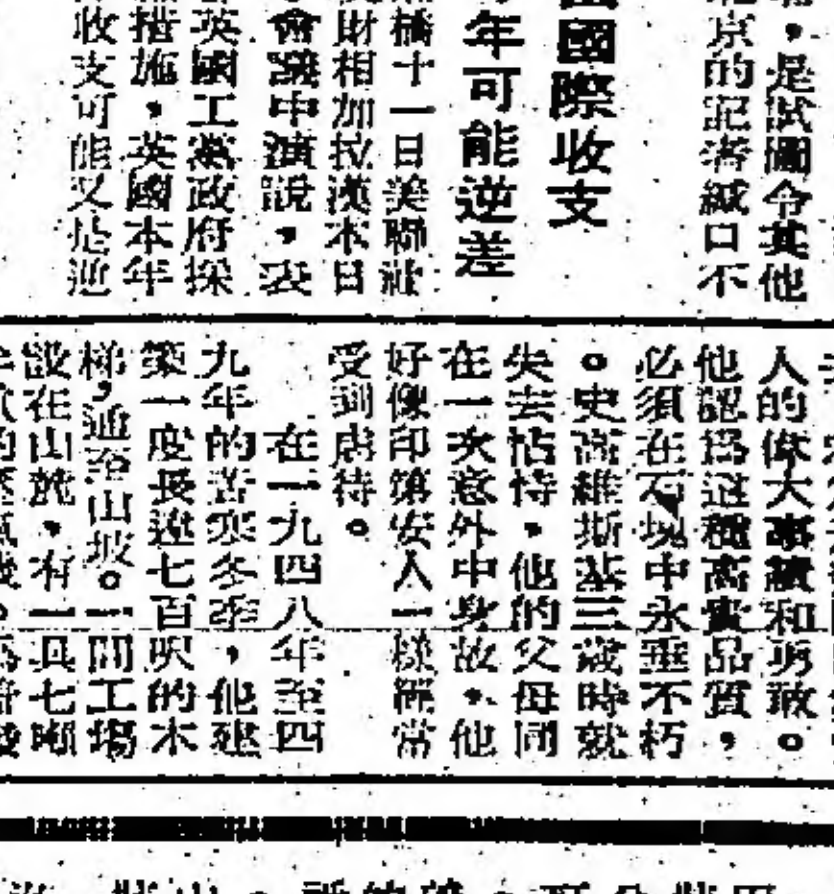 是試圖令其他
京的記者緘口不
國際收支
年可能逆差
橋十一日美聯社
財相加拉漢本日
會議中演說，表
英國工黨政府採
措施，英國本年
收支可能又是逆
人的偉大事績和勇敢。
他認爲這種高貴品質，
必須在石塊中永垂不朽
。史高維斯基三歲時就
失去怙恃，他的父母同
在一次意外中身故，他
好像印第安人一樣經常
受到虐待。
在一九四八年至四
九年的苦寒冬季，他建
築一度長達七百呎的木
梯，通至山坡。一間工場
設在山旒，有一具七噸